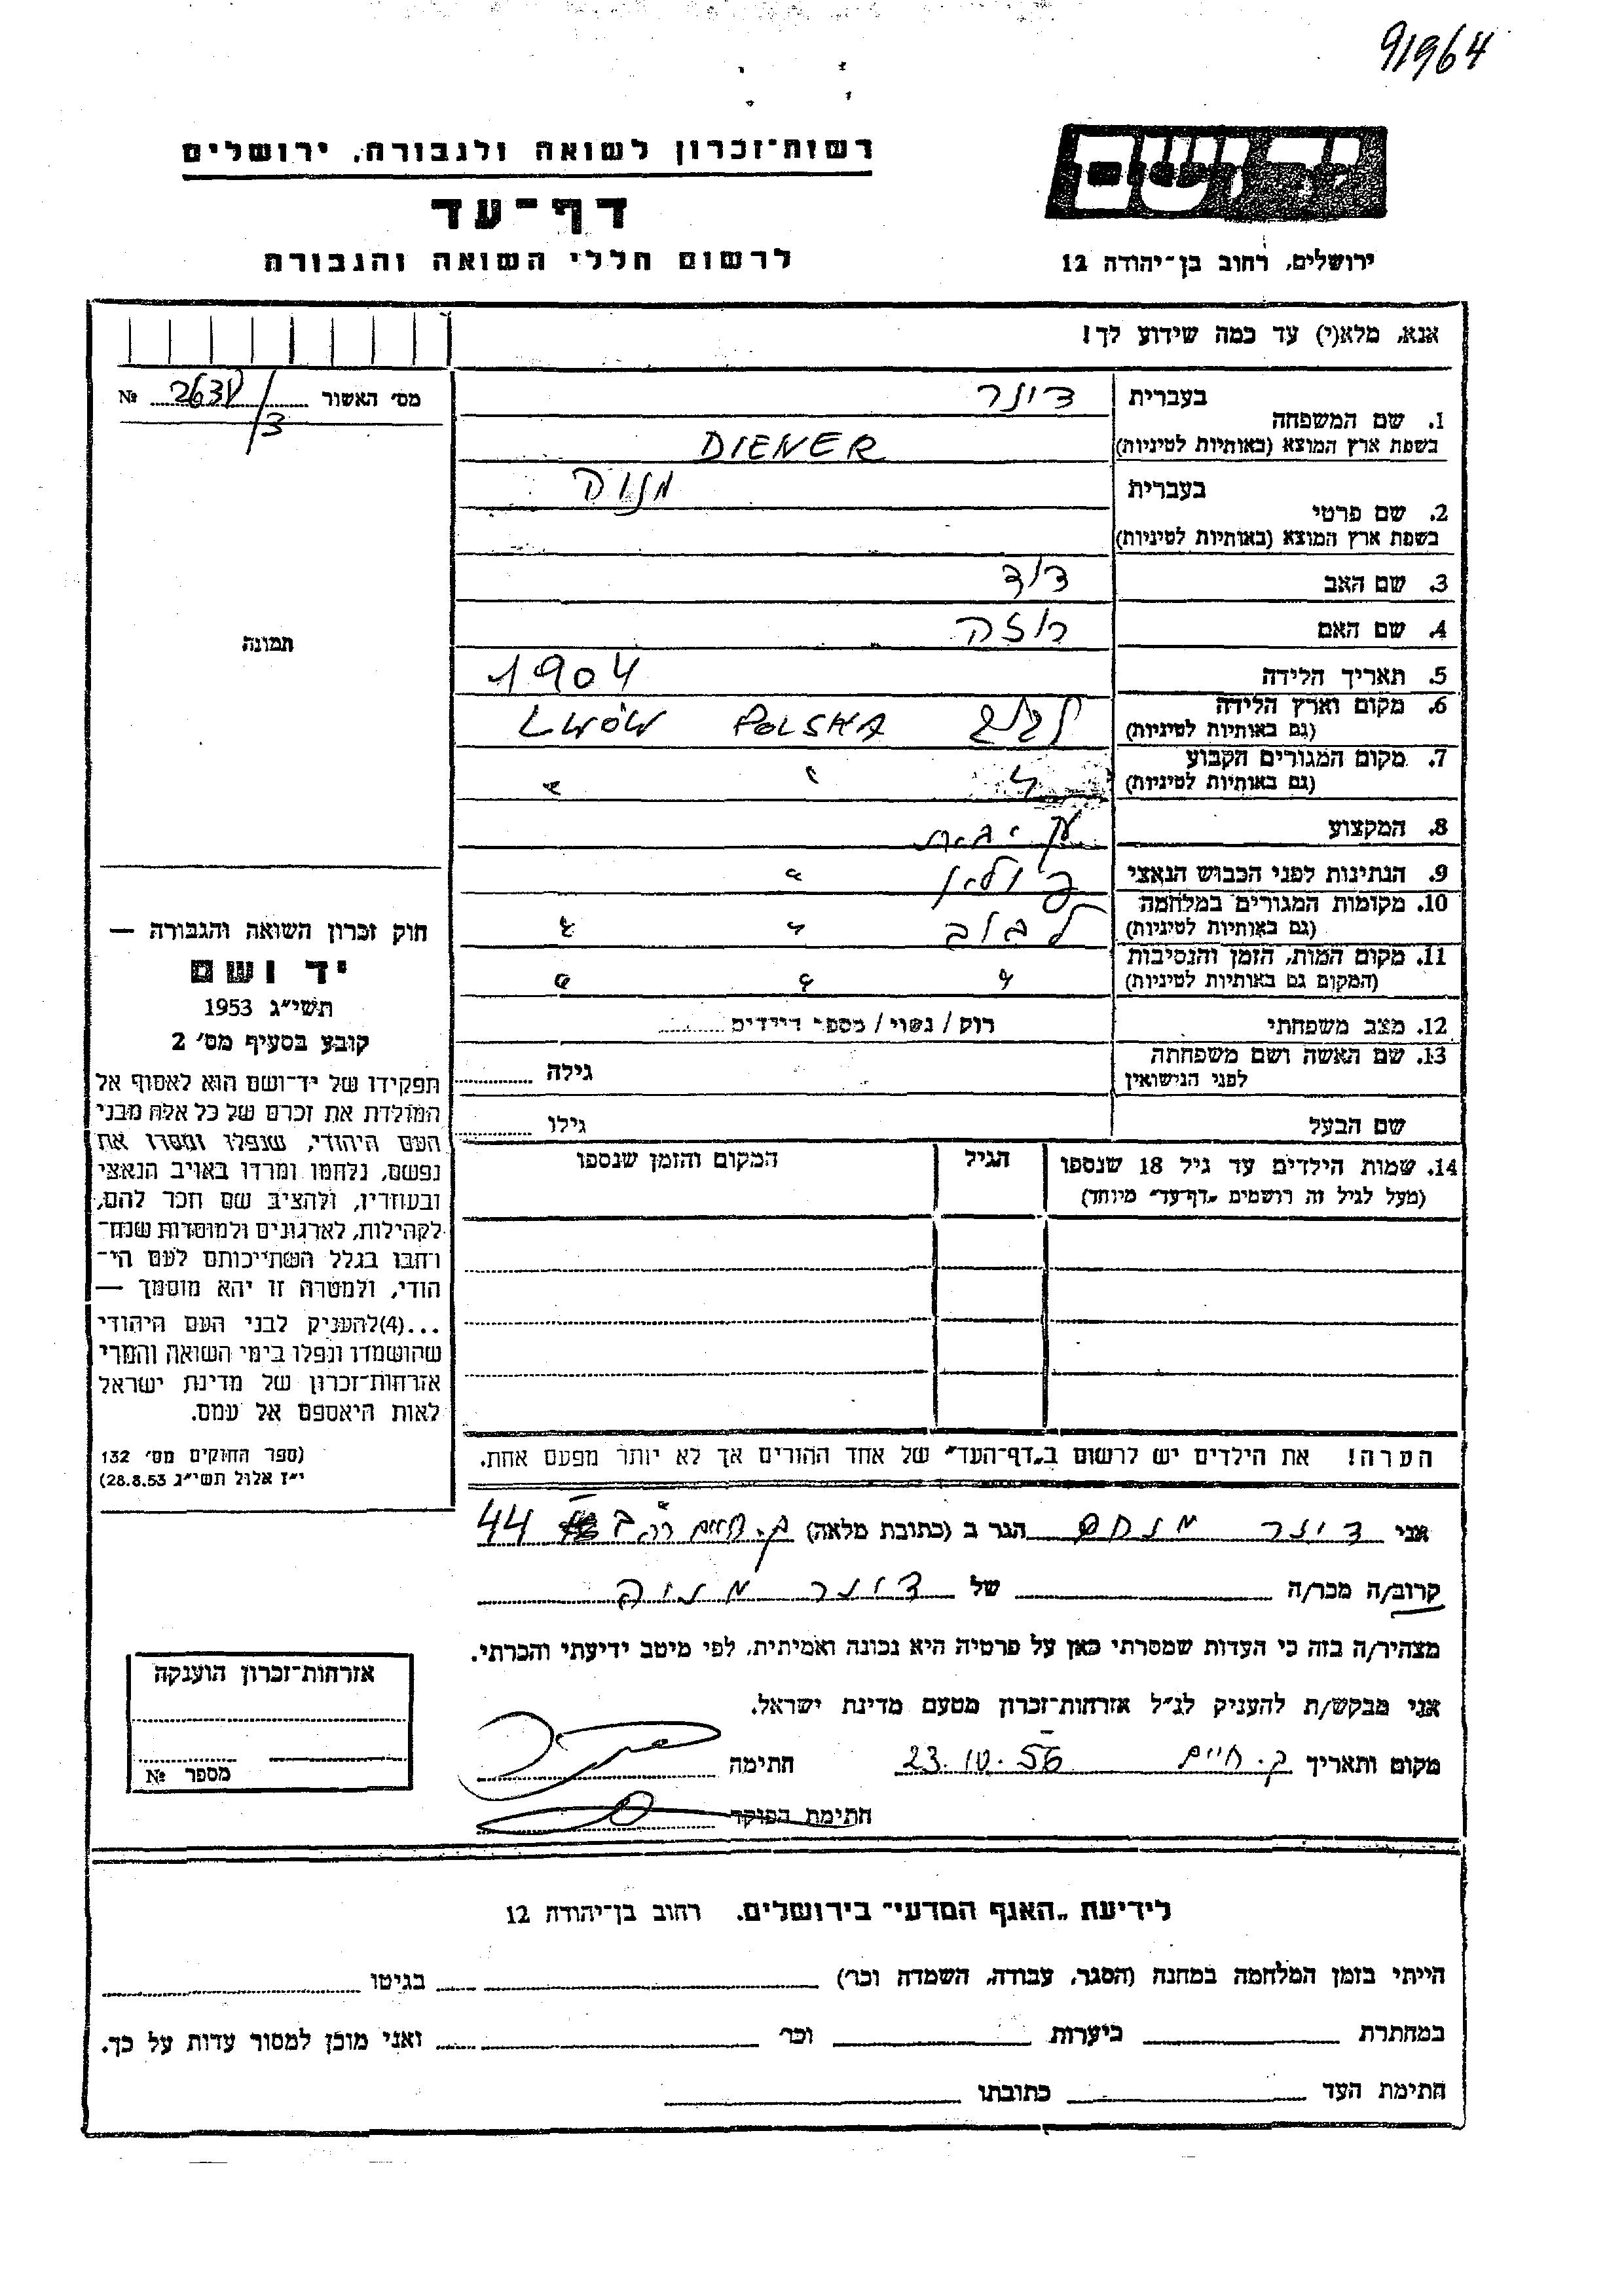 91964
רשות־זכרון לשואה ולגבורה, ירושלים
יד ושם
דף־עד
לרשום חללי השואה והגבורה
ירושלים, רחוב בן־יהודה 12
אנא, מלא(י) עד כמה שידוע לך!
מס׳ האשור № /3
1. שם המשפחה
בעברית דינר
בשפת ארץ המוצא (באותיות לטיניות) DIENER
2. שם פרטי
בעברית מנוה
בשפת ארץ המוצא (באותיות לטיניות)
3. שם האב דוד
4. שם האם רוזה
5. תאריך הלידה 1904
6. מקום וארץ הלידה לבוב POLSKA LWÓW
(גם באותיות לטיניות)
7. מקום המגורים הקבוע " " "
(גם באותיות לטיניות)
8. המקצוע
9. הנתינות לפני הכבוש הנאצי פולין "
10. מקומות המגורים במלחמה לבוב " "
(גם באותיות לטיניות)
11. מקום המות, הזמן והנסיבות " " "
(המקום גם באותיות לטיניות)
12. מצב משפחתי רוק / נשוי / מספר הילדים
13. שם האשה ושם משפחתה
לפני הנישואין גילה
שם הבעל גילו
14. שמות הילדים עד גיל 18 שנספו הגיל המקום והזמן שנספו
(מעל לגיל זה רושמים „דף־עד״ מיוחד)
הערה! את הילדים יש לרשום ב„דף־העד״ של אחד ההורים אך לא יותר מפעם אחת.
תמונה
חוק זכרון השואה והגבורה —
יד ושם
תשי״ג 1953
קובע בסעיף מס׳ 2
תפקידו של יד־ושם הוא לאסוף אל
המולדת את זכרם של כל אלה מבני
העם היהודי, שנפלו ומסרו את
נפשם, נלחמו ומרדו באויב הנאצי
ובעוזריו, ולהציב שם וזכר להם,
לקהילות, לארגונים ולמוסדות שנח־
רחבו בגלל השתייכותם לעם הי־
הודי, ולמטרה זו יהא מוסמך —
...(4)להעניק לבני העם היהודי
שהושמדו ונפלו בימי השואה והמרי
אזרחות־זכרון של מדינת ישראל
לאות היאספם אל עמם.
(ספר החוקים מס׳ 132
י״ז אלול תשי״ג 28.8.53)
אני דינר מנחם הגר ב (כתובת מלאה) ק. חיים 44
קרוב/ה מכר/ה של דינר מנוה
מצהיר/ה בזה כי העדות שמסרתי כאן על פרטיה היא נכונה ואמיתית, לפי מיטב ידיעתי והכרתי.
אני מבקש/ת להעניק לנ״ל אזרחות־זכרון מטעם מדינת ישראל.
מקום ותאריך ק. חיים 23.10.56 חתימה
חתימת הפוקד
אזרחות־זכרון הוענקה
מספר №
לידיעת „האגף המדעי״ בירושלים, רחוב בן־יהודה 12
הייתי בזמן המלחמה במחנה (הסגר, עבודה, השמדה וכר׳) בגיטו
במחתרת ביערות וכר׳ ואני מוכן למסור עדות על כך.
חתימת העד כתובתו